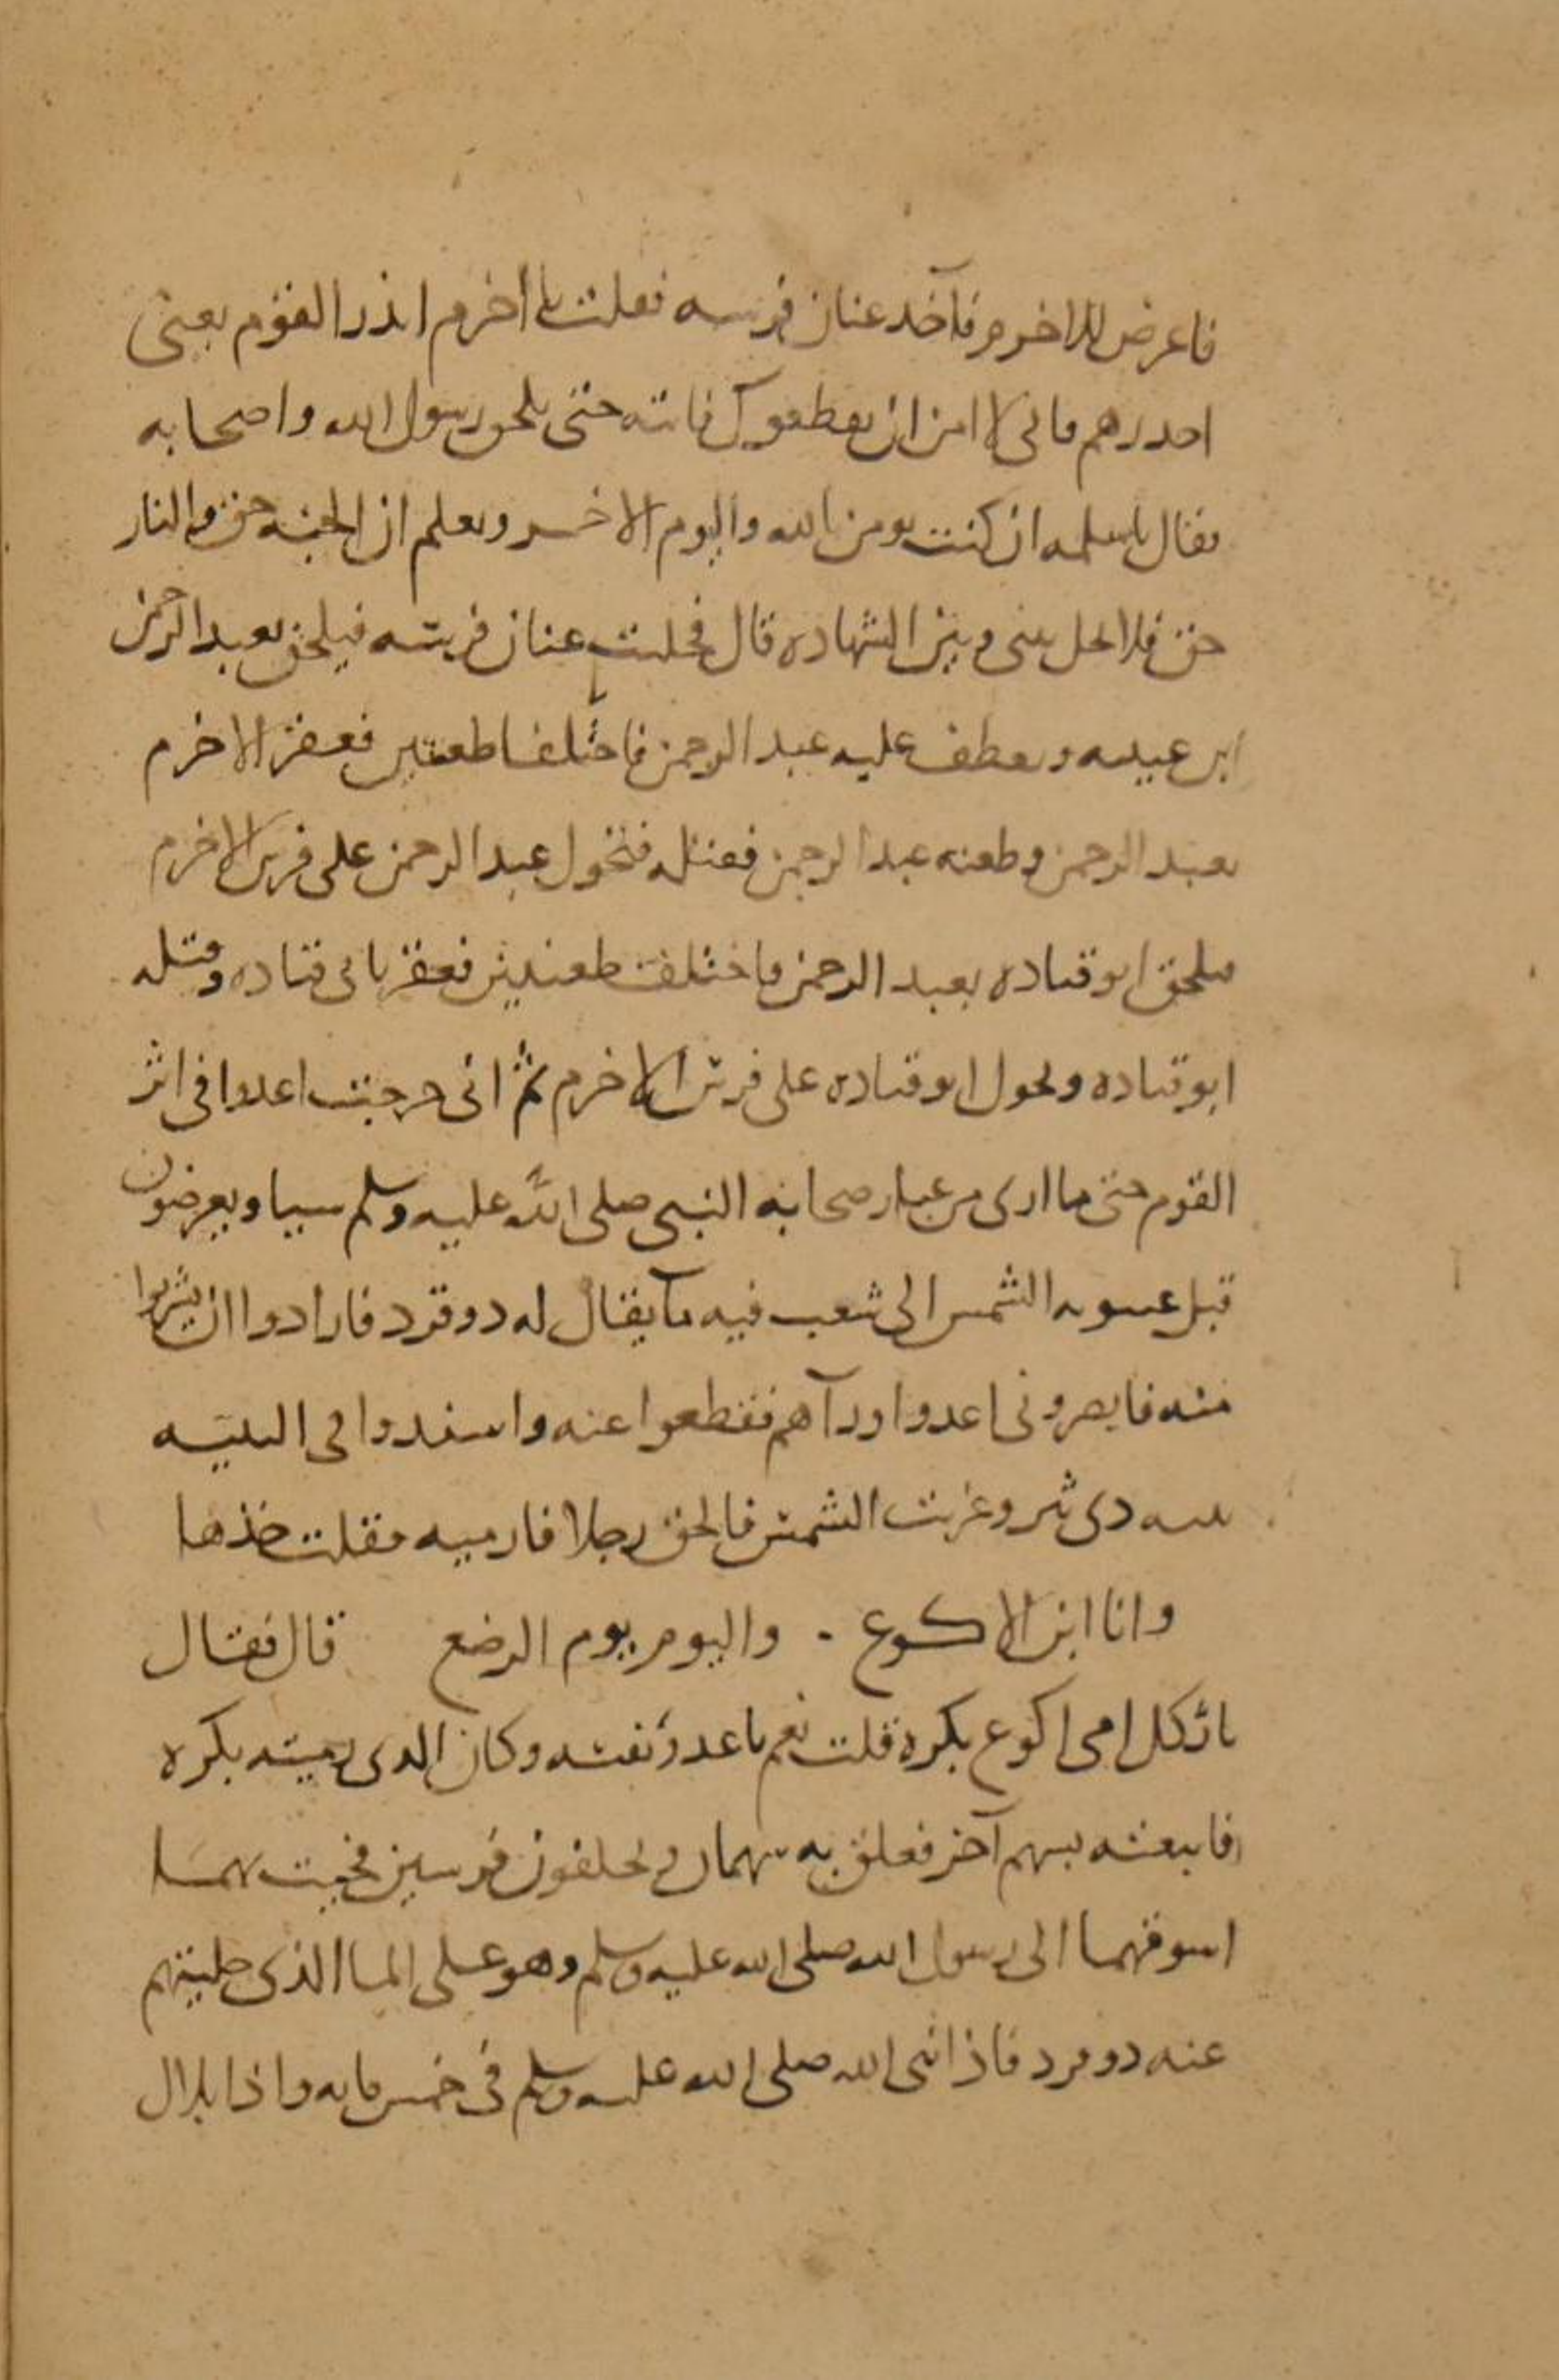 فاعرض للاخرم فآخذ عنان فرسه فقلت يا أخرم انذر القوم يعنى
احذرهم فانى لا امن ان يقطعوك فاتئه حتى يلحق رسول الله واصحابه
فقال يا سلمه ان كنت تومن بالله واليوم الاخر وتعلم ان الجنه حق والنار
حق فلا تحل بينى وبين الشهاده قال فخليت عنان فرسه فيلحق بعبد الرحمن
ابن عيينه ويعطف عليه عبد الرحمن فاختلفا طعنتين فعقر الاخرم
بعبد الرحمن وطعنه عبد الرحمن فقتله فتحول عبد الرحمن على فرس الاخرم
فيلحق ابو قتاده بعبد الرحمن فاختلفت طعنتين فعقر بابى قتاده وقتله
ابو قتاده وتحول ابو قتاده على فرس الاخرم ثم انى خرجت اعدوا فى اثر
القوم حتى ما ارى من غبار صحابه النبى صلى الله عليه وسلم شيا ويعرضون
قبل غيبوبه الشمس الى شعب فيه مآ يقال له ذو قرد فارادوا ان يشربوا
منه فابصرونى اعدوا ورآهم فقطعوا عنه واسندوا فى الثنيه
ثنيه ذى ثير وغربت الشمس فالحق رجلا فارميه فقلت خذها
وانا ابن الاكوع . واليوم يوم الرضع قال فقال
يا ثكل امى اكوع بكره قلت نعم يا عدو نفسه وكان الذى رميته بكره
فاتبعته بسهم آخر فعلق به سهمان ويخلفون فرسين فجيت بهما
اسوقهما الى رسول الله صلى الله عليه وسلم وهو على الما الذى حليتهم
عنه ذو قرد فاذا نبى الله صلى الله عليه وسلم فى خمس مايه واذا بلال